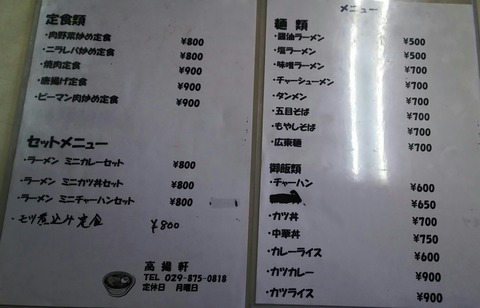 定食類
・肉野菜炒め定食 ¥800
・ニラレバ炒め定食 ¥800
・焼肉定食 ¥900
・唐揚げ定食 ¥900
・ピーマン肉炒め定食 ¥900
セットメニュー
・ラーメン ミニカレーセット ¥800
・ラーメン ミニカツ丼セット ¥800
・ラーメン ミニチャーハンセット ¥800
・モツ煮込み定食 ¥800
高揚軒
TEL 029-875-0818
定休日 月曜日
メニュー
麺類
・醤油ラーメン ¥500
・塩ラーメン ¥500
・味噌ラーメン ¥700
・チャーシューメン ¥700
・タンメン ¥700
・五目そば ¥700
・もやしそば ¥700
・広東麺 ¥700
御飯類
・チャーハン ¥600
¥650
・カツ丼 ¥700
・中華丼 ¥750
・カレーライス ¥600
・カツカレー ¥900
・カツライス ¥900